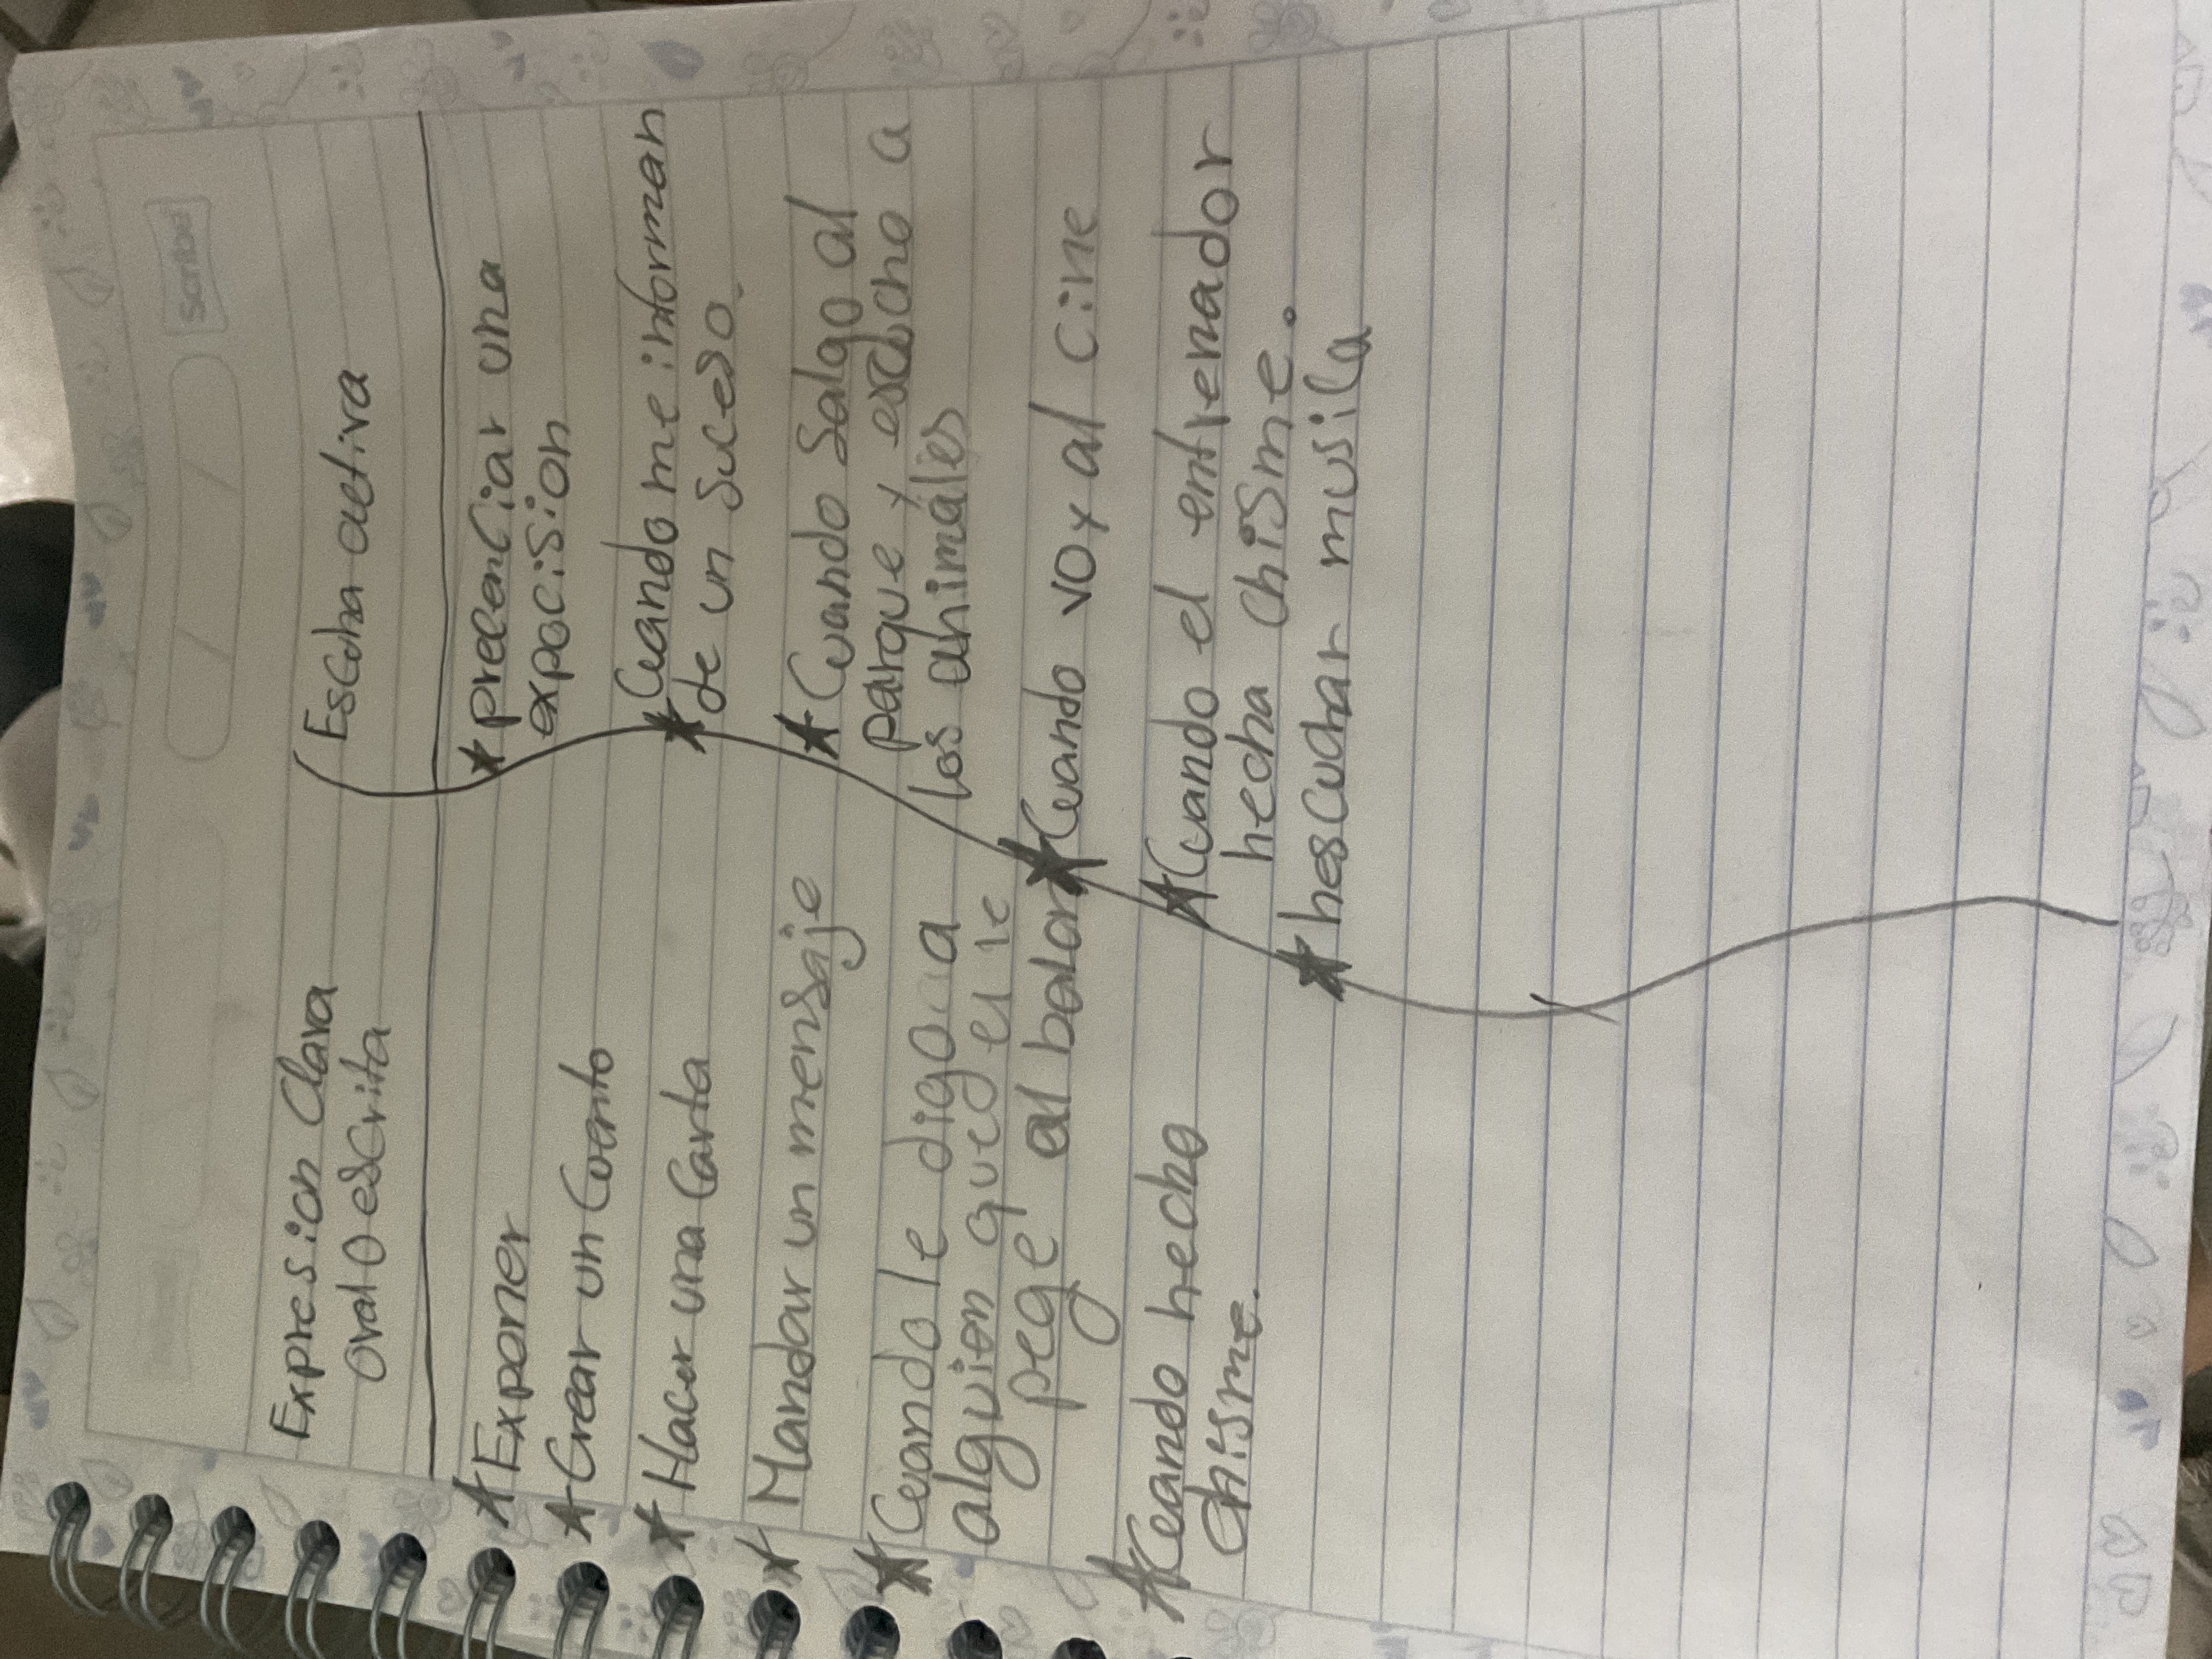 Scribe
Expresion Clara
oral o escrita
* Exponer
* Crear un Cuento
* Hacer una Carta
* Mandar un mensaje
* Cuando le digo a
alguien que el le
pege al balon
* Cuando hecho
chisme.
Escuha activa
* precenciar una
expocision
* Cuando me informan
de un suceso.
* Cuando Salgo al
parque y escucho a
los animales
* Cuando voy al cine
* Cuando el entrenador
hecha chisme.
* hescuchar musica